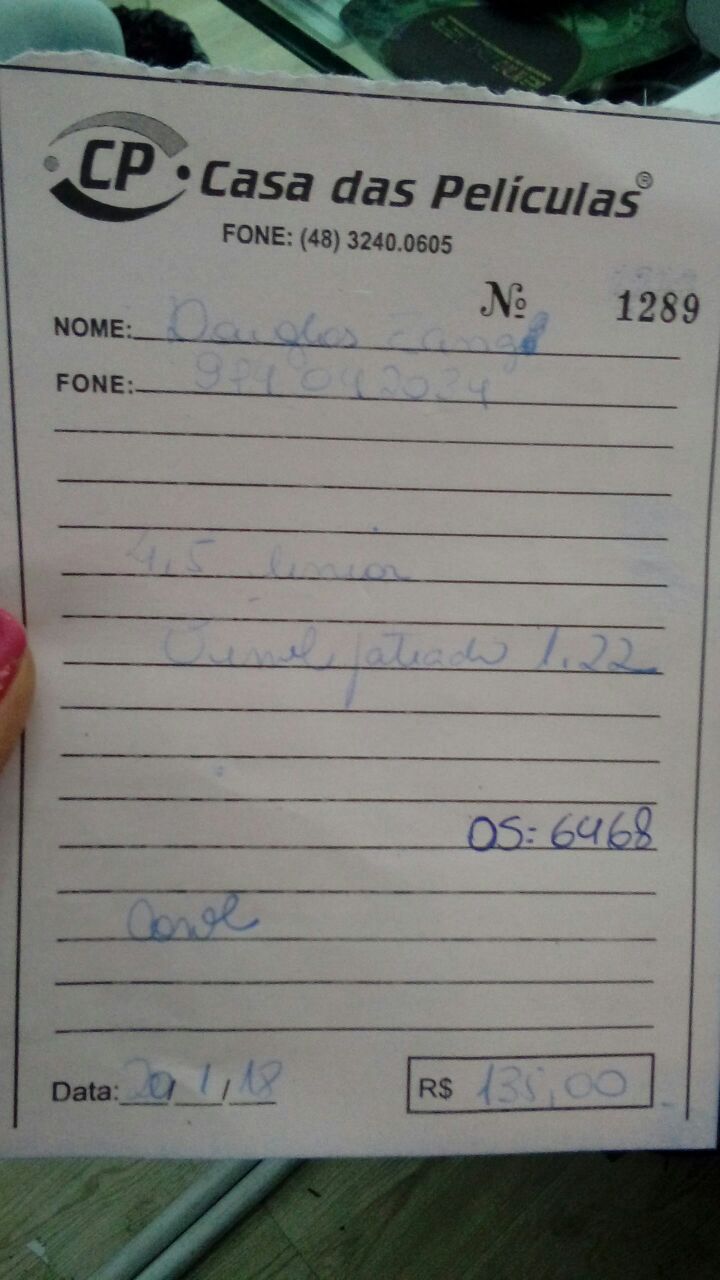 CP • Casa das Películas®
FONE: (48) 3240.0605
Nº 1289
NOME: Douglas
FONE: 984042034
4,5 linear
Vinil jateado 1.22
OS: 6468
Data: 20/1/18 R$ 135,00